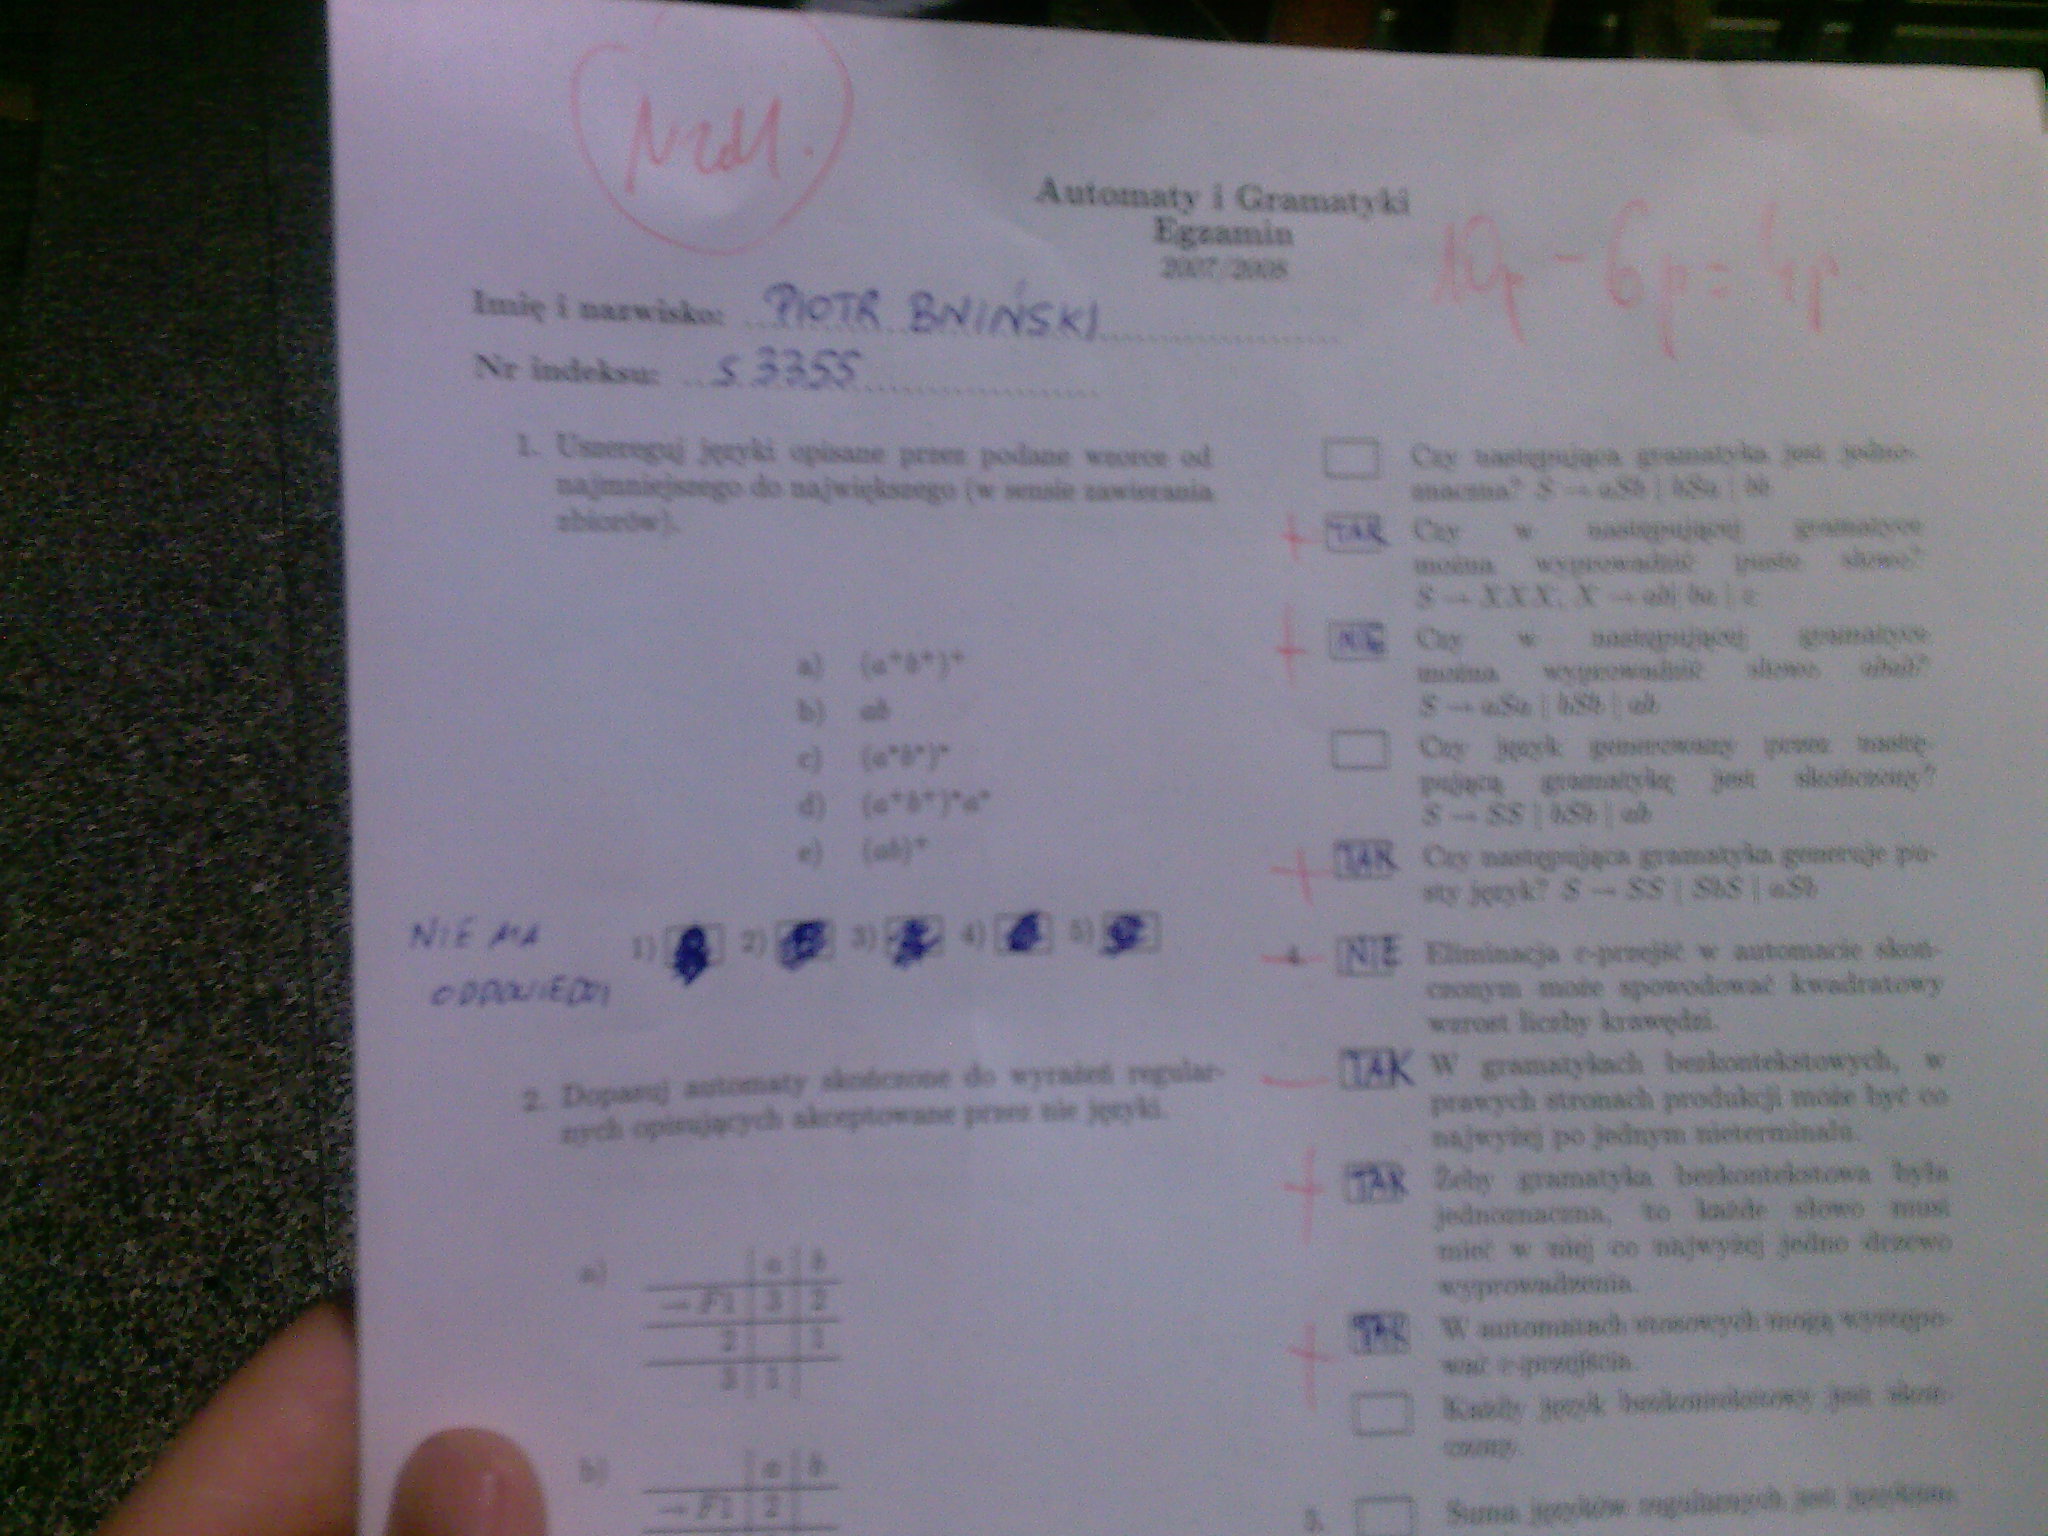 Nzdl.
Automaty i Gramatyki
Egzamin
2007/2008
10p - 6p = 4p.
Imię i nazwisko: PIOTR BNIŃSKI
Nr indeksu: S3355
1. Uszereguj języki opisane przez podane wzorce od
najmniejszego do największego (w sensie zawierania
zbiorów).
a) (a⁺b⁺)⁺
b) ab
c) (a*b*)*
d) (a⁺b⁺)*a*
e) (ab)⁺
NIE MA
ODPOWIEDZI
1) 2) 3) 4) 5)
2. Dopasuj automaty skończone do wyrażeń regular-
nych opisujących akceptowane przez nie języki.
a) a b
→F1 3 2
2 1
3 1
b) a b
→F1 2
Czy następująca gramatyka jest jedno-
znaczna? S → aSb | bSa | bb
+ TAK Czy w następującej gramatyce
można wyprowadzić puste słowo?
S → XXX, X → ab| ba | ε
+ NIE Czy w następującej gramatyce
można wyprowadzić słowo abab?
S → aSa | bSb | ab
Czy język generowany przez nastę-
pującą gramatykę jest skończony?
S → SS | bSb | ab
+ TAK Czy następująca gramatyka generuje pu-
sty język? S → SS | SbS | aSb
- 4. NIE Eliminacja ε-przejść w automacie skoń-
czonym może spowodować kwadratowy
wzrost liczby krawędzi.
- TAK W gramatykach bezkontekstowych, w
prawych stronach produkcji może być co
najwyżej po jednym nieterminalu.
+ TAK Żeby gramatyka bezkontekstowa była
jednoznaczna, to każde słowo musi
mieć w niej co najwyżej jedno drzewo
wyprowadzenia.
+ TAK W automatach stosowych mogą występo-
wać ε-przejścia.
Każdy język bezkontekstowy jest skoń-
czony.
5. Suma języków regularnych jest językiem